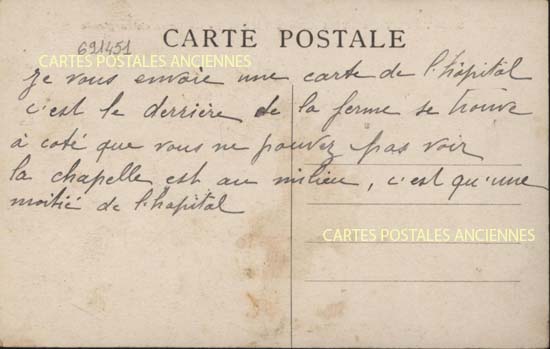 691451
CARTE POSTALE
CARTES POSTALES ANCIENNES
Je vous envoie une carte de l'hôpital
c'est le derrière de la ferme se trouve
à coté que vous ne pouvez pas voir
la chapelle est au milieu, c'est qu'une
moitié de l'hopital
CARTES POSTALES ANCIENNES